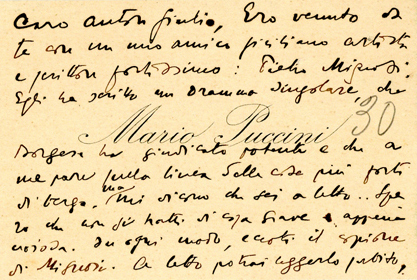 Caro Anton Giulio, Ero venuto da
te con un mio amico siciliano artista
e scrittore fortissimo: Pietro Mignosi.
Egli ha scritto un dramma singolare, che
30
Mario Puccini
Borgese ha giudicato potente e che a
me pare sulla linea delle cose più forti
di Verga, ma mi dicono che sei a letto.. Spe
ro che non si tratti di cosa grave e appena
noiosa. In ogni modo, eccoti il copione
di Mignosi. A letto potrai leggerlo subito,